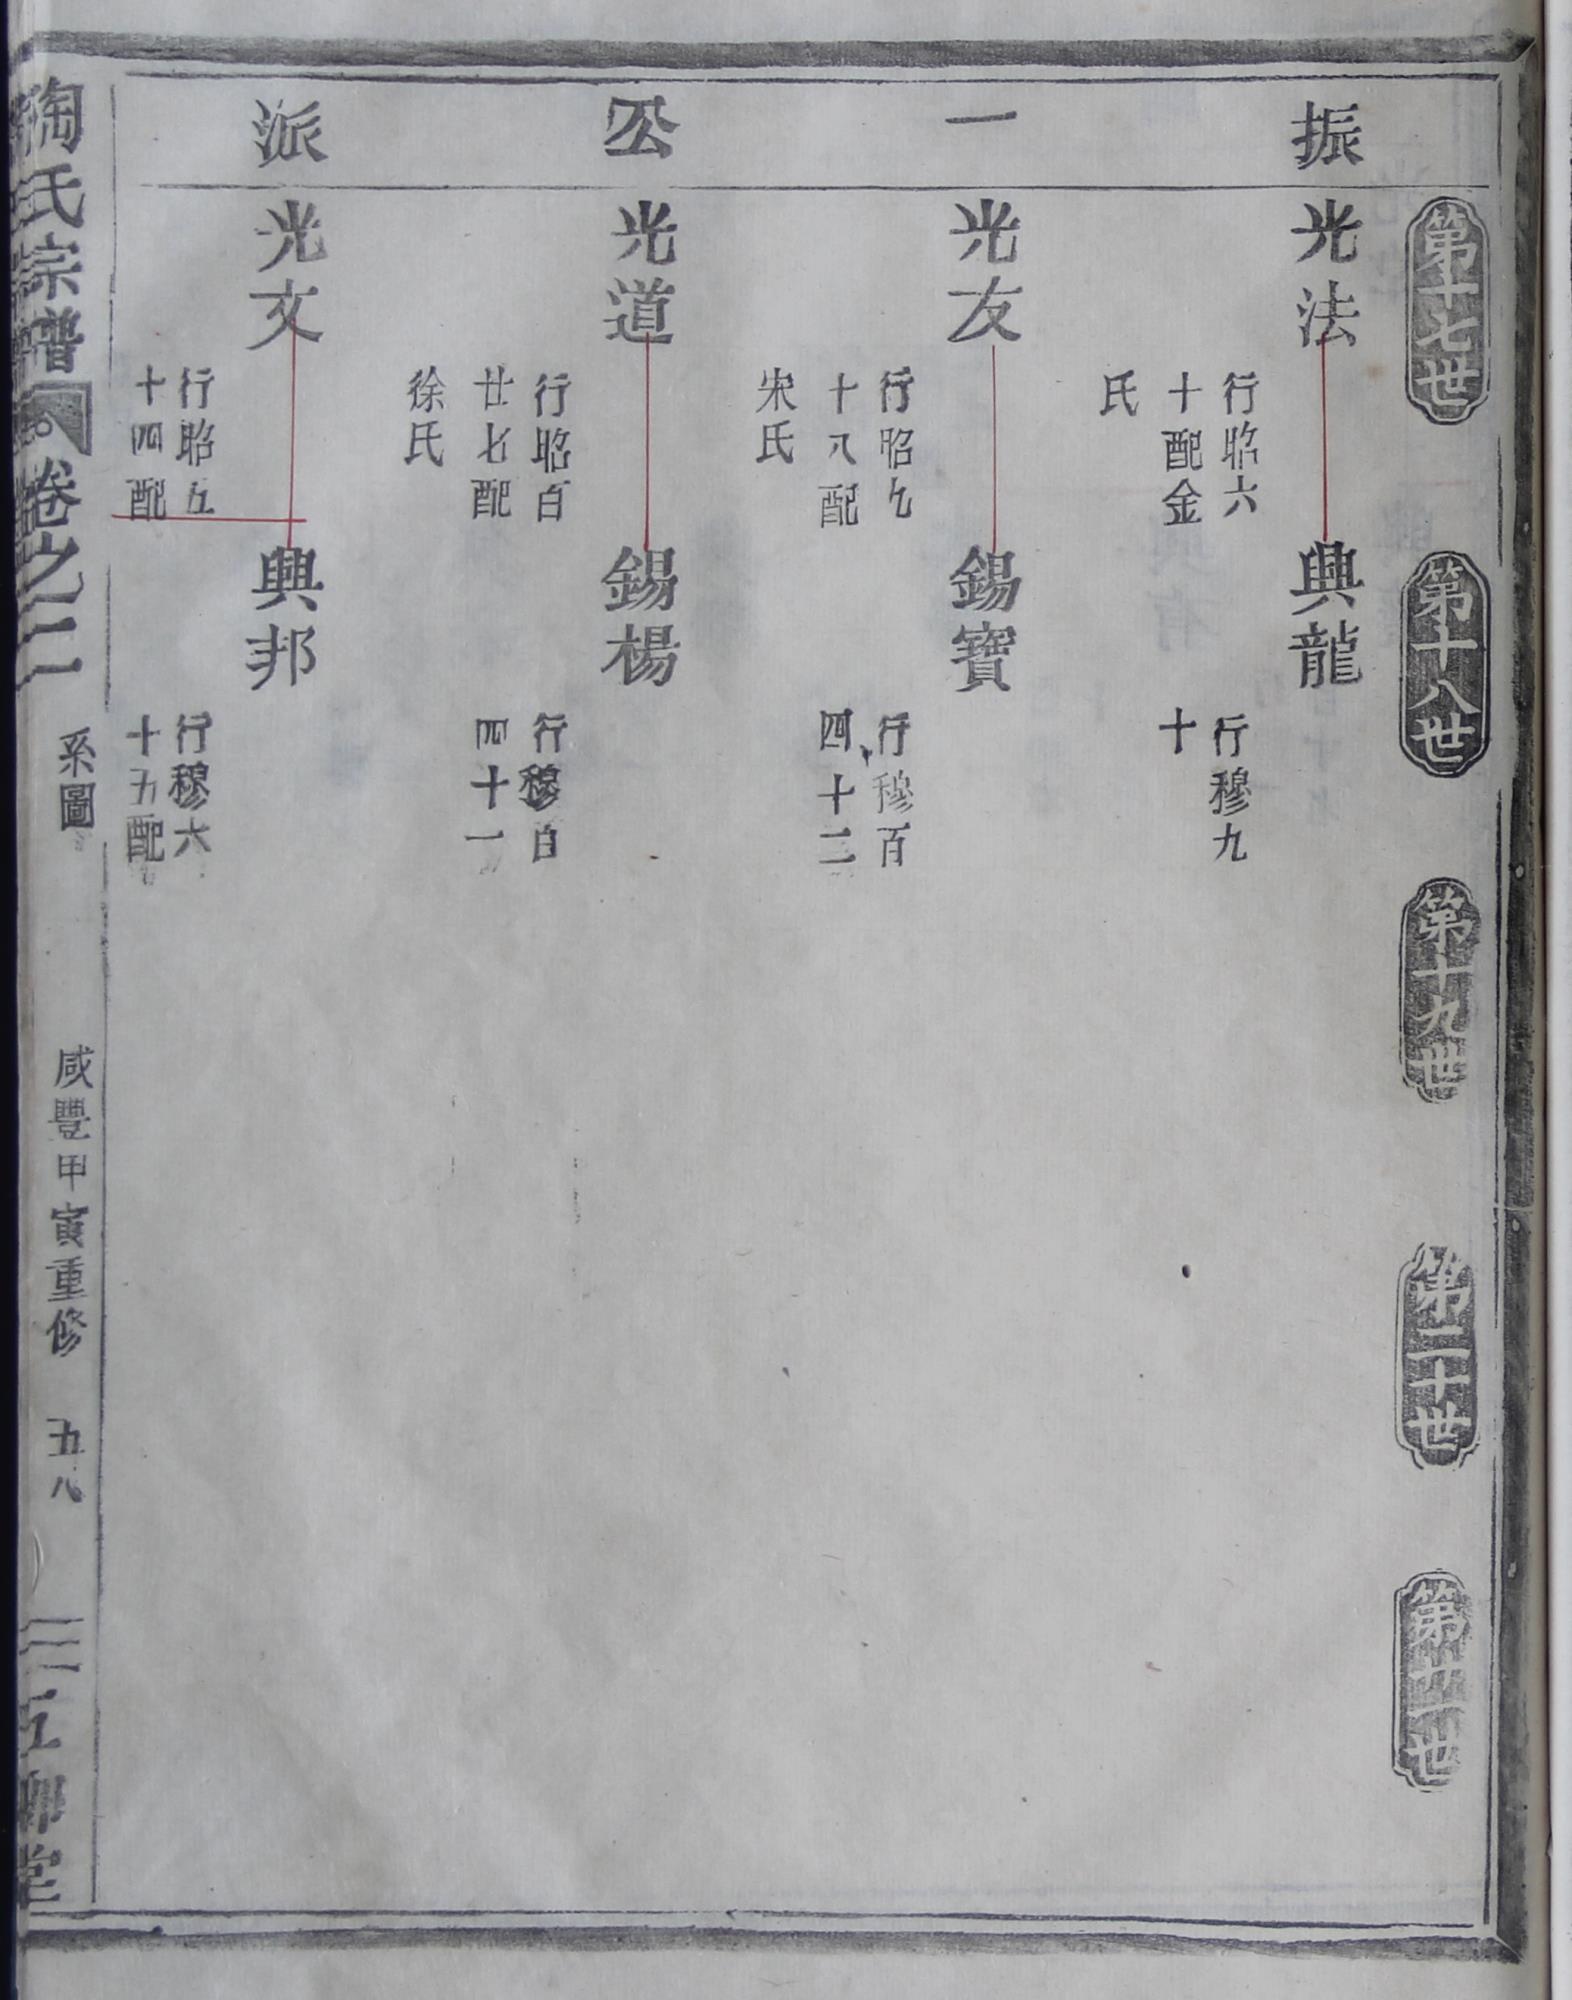 第十七世
第十八世
第十九世
第二十世
第廿一世
振一公派
光法
行昭六
十配金
氏
興龍
行穆九
十
光友
行昭九
十八配
宋氏
錫寶
行穆百
四十二
光道
行昭百
廿七配
徐氏
錫楊
行穆百
四十一
光文
行昭五
十四配
興邦
行穆六
十五配
陶氏宗譜
卷之二
系圖
咸豐甲寅重修
五八
五柳堂